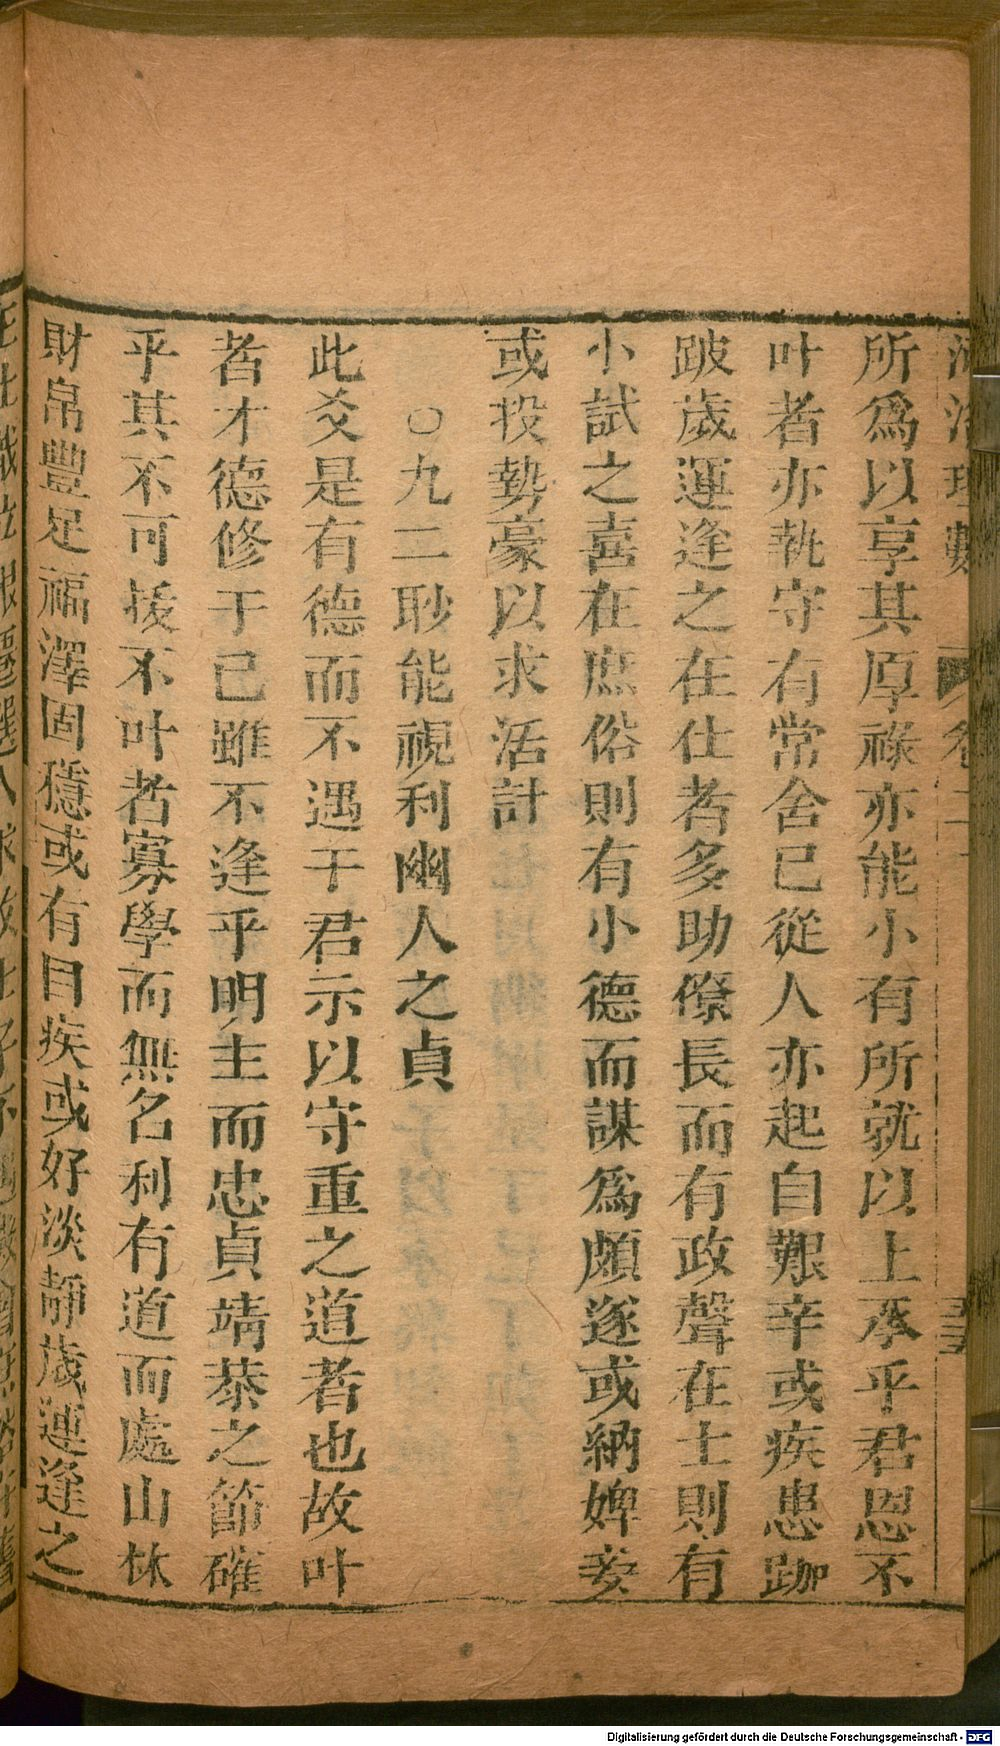 河洛理數 卷二
所爲以享其厚祿亦能小有所就以上承乎君恩不
叶者亦執守有常舍己從人亦起自艱辛或疾患跏
跛歲運逢之在仕者多助僚長而有政聲在士則有
小試之喜在庶俗則有小德而謀爲頗遂或納婢妾
或投勢豪以求活計
○九二眇能視利幽人之貞
此爻是有德而不遇于君示以守重之道者也故叶
者才德修于己雖不逢乎明主而忠貞靖恭之節確
乎其不可拔不叶者寡學而無名利有道而處山林
財帛豐足福澤固穩或有目疾或好淡靜歲運逢之
Digitalisierung gefördert durch die Deutsche Forschungsgemeinschaft - DFG